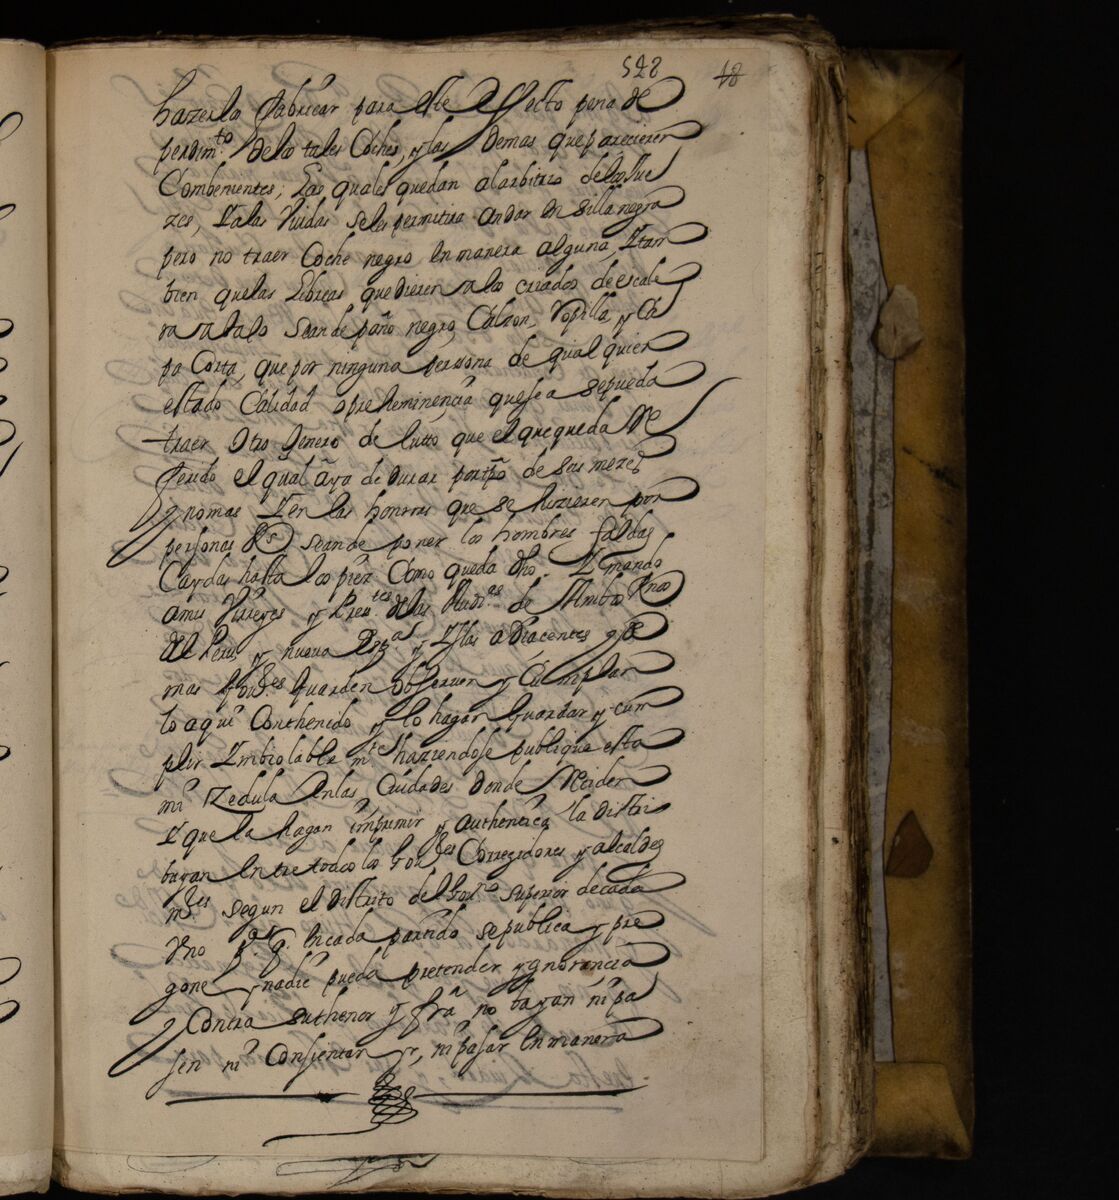 528 48
hazerlos fabricar para este effecto pena de
perdim.to de los tales Coches, y las demas que parecieren
Combenientes; Las quales quedan al arbitrio de los Jue
zes, Y a las Viudas se les permitira andar en silla negra
pero no traer Coche negro en manera alguna, Y tan
bien que las Libreas que dieren a los criados de escale
ra abajo sean de paño negro, Calzon, Ropilla, y Ca
pa Corta, que por ninguna persona de qualquier
estado Calidad o preheminencia que sea se pueda
traer Otro genero de luto que el que queda Re
ferido el qual aya de durar por tpo de seis meses
y no mas Y en las honrras que se hizieren por
personas Rs. se ande poner los hombres faldas
Caydas hasta los pies Como queda dho. Y mando
a mis Virreyes y Pres.tes de las Audi.as de Ambos Rnos
del Peru y nueva Esp.a y Yslas adjacentes y de
mas Gou.res guarden obseruen y Cumplan
lo aqui Conthenido y lo hagan guardar y cum
plir Imbiolablem.te haziendose publique esta
mi Zedula en las Ciudades donde Reciden
Y que la hagan imprimir y authentica la distri
buyan entre todos los Gou.res Corregidores y alcaldes
m.res segun el distrito del Gou.no superior de cada
Vno p.a q. en cada partido se publica y pre
gone y nadie pueda pretender ygnorancia
y Contra su thenor y fra no bayan ni pa
sen ni Consientan yr, ni pasar en manera